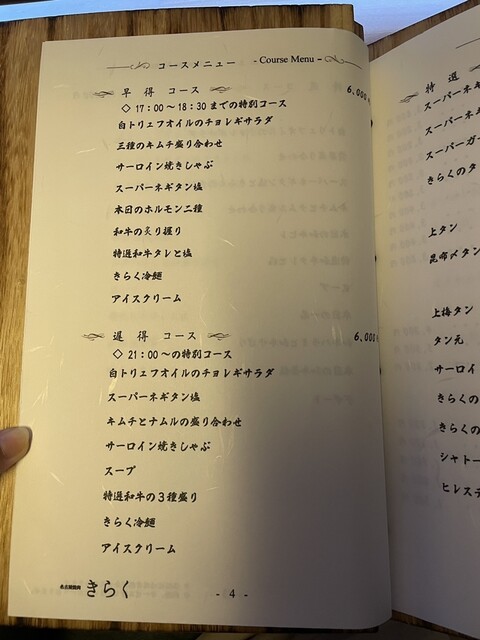 コースメニュー - Course Menu -
早得 コース 6,000
◇ 17:00〜18:30までの特別コース
白トリュフオイルのチョレギサラダ
三種のキムチ盛り合わせ
サーロイン焼きしゃぶ
スーパーネギタン塩
本日のホルモン二種
和牛の炙り握り
特選和牛タレと塩
きらく冷麺
アイスクリーム
遅得 コース 6,000
◇ 21:00〜の特別コース
白トリュフオイルのチョレギサラダ
スーパーネギタン塩
キムチとナムルの盛り合わせ
サーロイン焼きしゃぶ
スープ
特選和牛の3種盛り
きらく冷麺
アイスクリーム
きらく
- 4 -
特選
スーパーネギ
スーパーネギ
スーパーガー
きらくのタ
上タン
昆布〆タン
上極タン
タン元
サーロイ
きらくの
きらくの
シャトー
ヒレステ